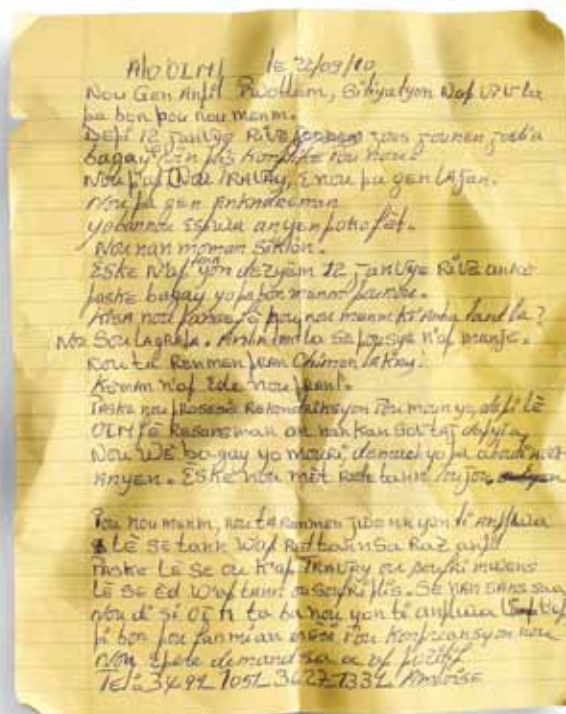 Alo OIM le 22/09/10
Nou Gen Anpil Pwoblèm, Sitiyasyon Nap Viv la
pa bon pou nou menm.
Depi 12 Janvye Rive jous jounen jodi a
bagay vin pis pou nou
Nou pap TRAVAY, E nou pa gen LAjan.
Nou pa gen Ankadreman
yo bannou Espwa anyen poko fèt.
Nou nan moman Siklòn.
ESke N'ap yon dezyèm 12 Janvye Rive anko
paske bagay yo pa bon menm pou nou.
KiSA nou panse fè pou nou menm ki Anba tant la?
Nou Sou LAGRAJA. Anba tant la Se pousyè n'ap manje.
Nou ta Renmen pRan Chimen lakay.
Koman n'ap Ede nou pRan l.
Paske nou Rekonstriksyon Pou moun yo, depi lè
OIM fè Resansman an nan Kan
Nou WÈ bagay yo mouri demach yo pa abouti
Anyen. ÈSke nou mèt Rete tann toujou
Pou nou menm, nou ta Renmen jwenn yon ti Anplwa
LÈ Se tann W'ap Ret tann Sa Raz anpil
PaSke LÈ Se ou K'ap TRAVAY ou Soufri mwens
LÈ Se Èd W'ap tann ou Soufri plis. Se NAN SANS saa
Nou di Si OIM ta ba nou yon ti anplwa
pi bon pou fanmi an mèsi Pou Konpreansyon nou
Nou Espere demand Sa a ap pozitif
TEl: 3492 7051 3627 7332 Ambroise